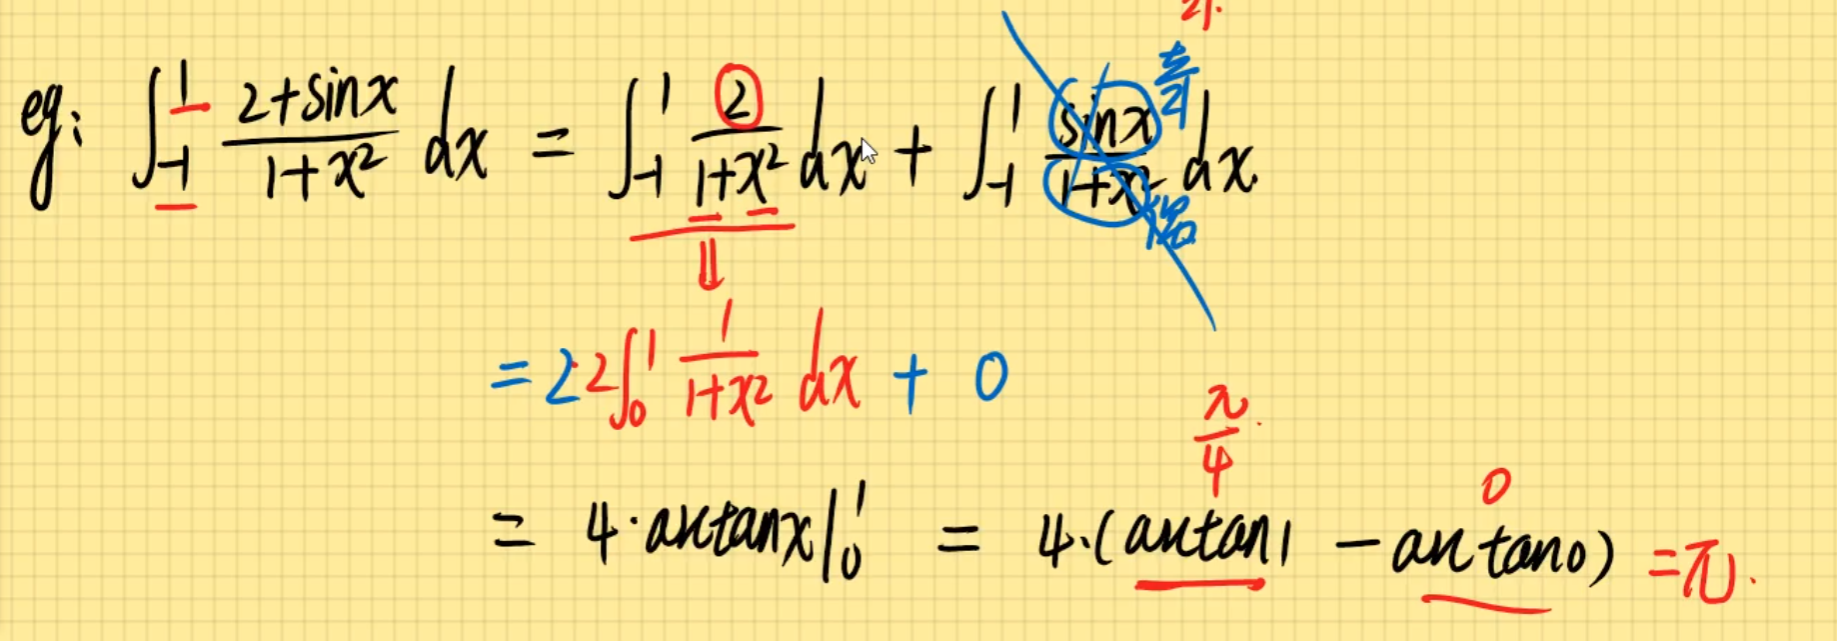 eg: ∫_{-1}^{1} (2+sinx)/(1+x²) dx = ∫_{-1}^{1} 2/(1+x²) dx + ∫_{-1}^{1} sinx/(1+x²) dx. 奇 偶
= 2·2∫_0^1 1/(1+x²) dx + 0
π/4 0
= 4·arctanx|_0^1 = 4·(arctan1 - arctan0) = π.